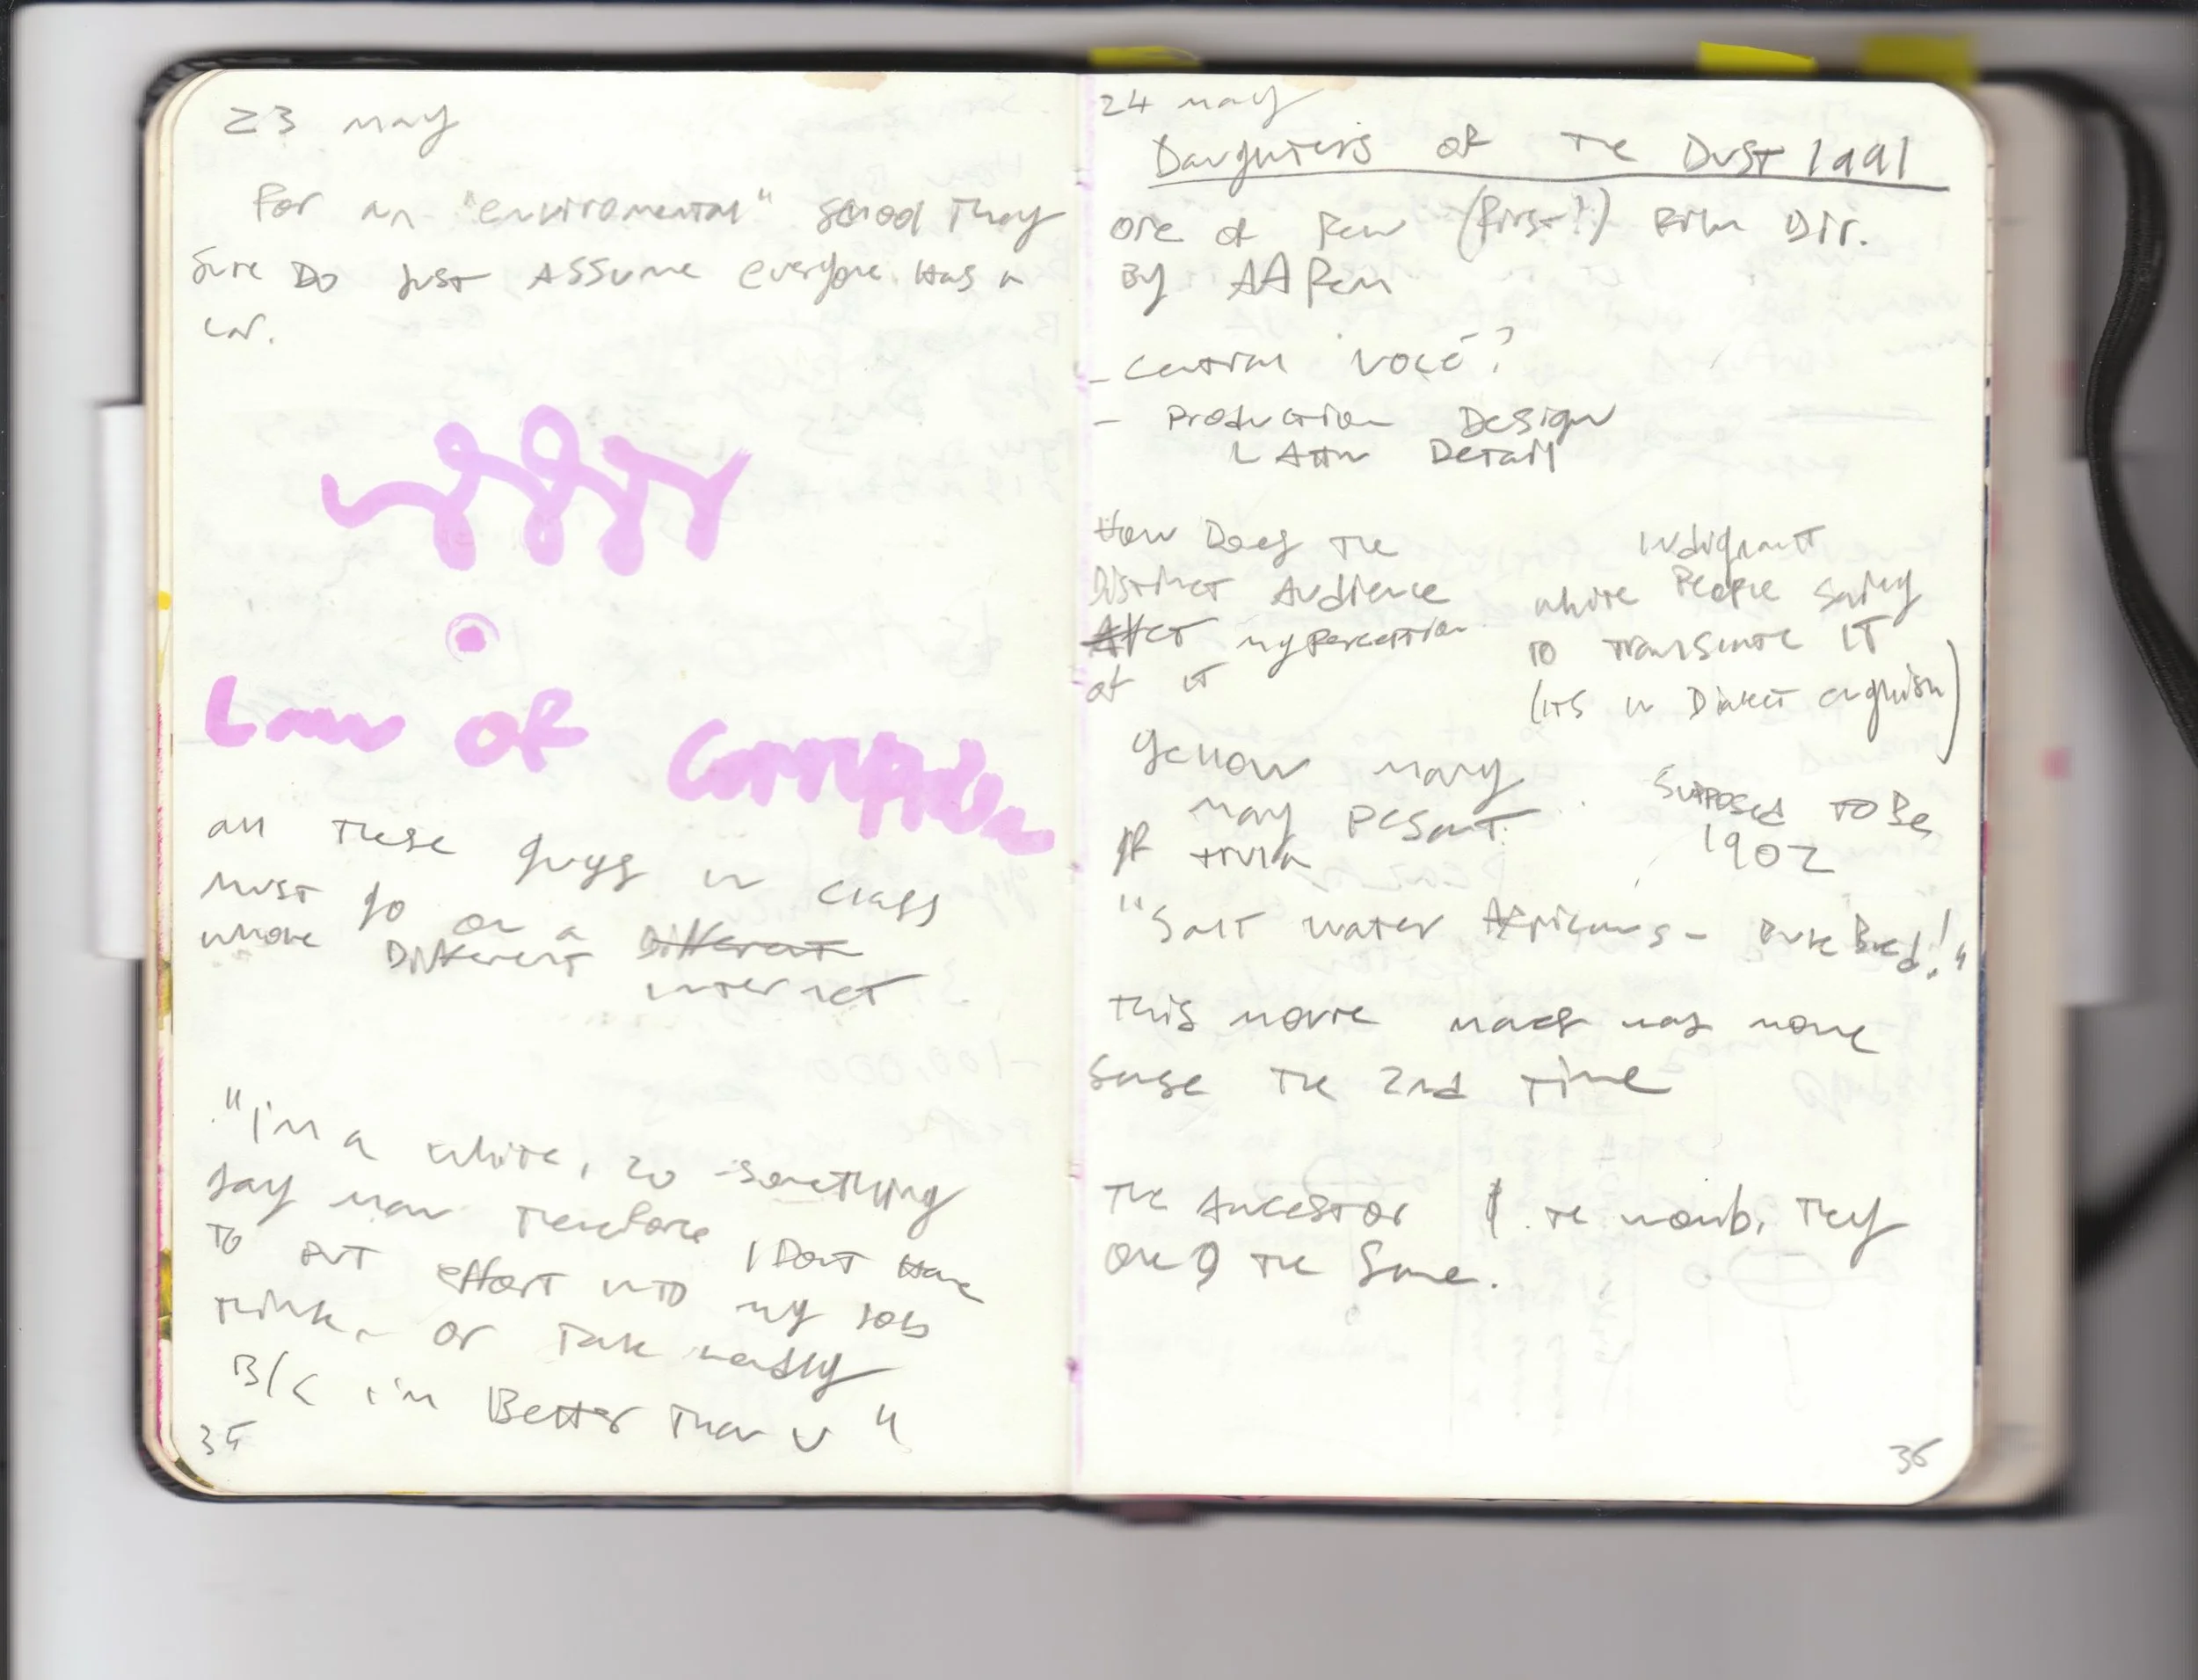 23 may
For an "enviromental" school they
sure Do just Assume everyone Has a
car.
Law of Corruption
all these guys in class
must go on a
whole Different Different
internet
"I'm a white, so something
say now therefore I Don't Have
to put effort into my job
think, or talk
B/c i'm Better than u"
35
24 may
Daughters of The Dust 1991
one of few (first?) Film Dir.
By AA Fem
- Central voice?
- Production Design
L Attn Detail
How Does the
Distinct Audience
Affect my perception
of it
indignant
white People
to translate IT
(its in Dialect english)
Yellow Mary
may pesant.
of trula
Supposed to Be
1902
"Salt water Africans - Pure Bred!"
This movie makes way more
sense the 2nd time
The Ancestor & the womb, they
one & the same.
36